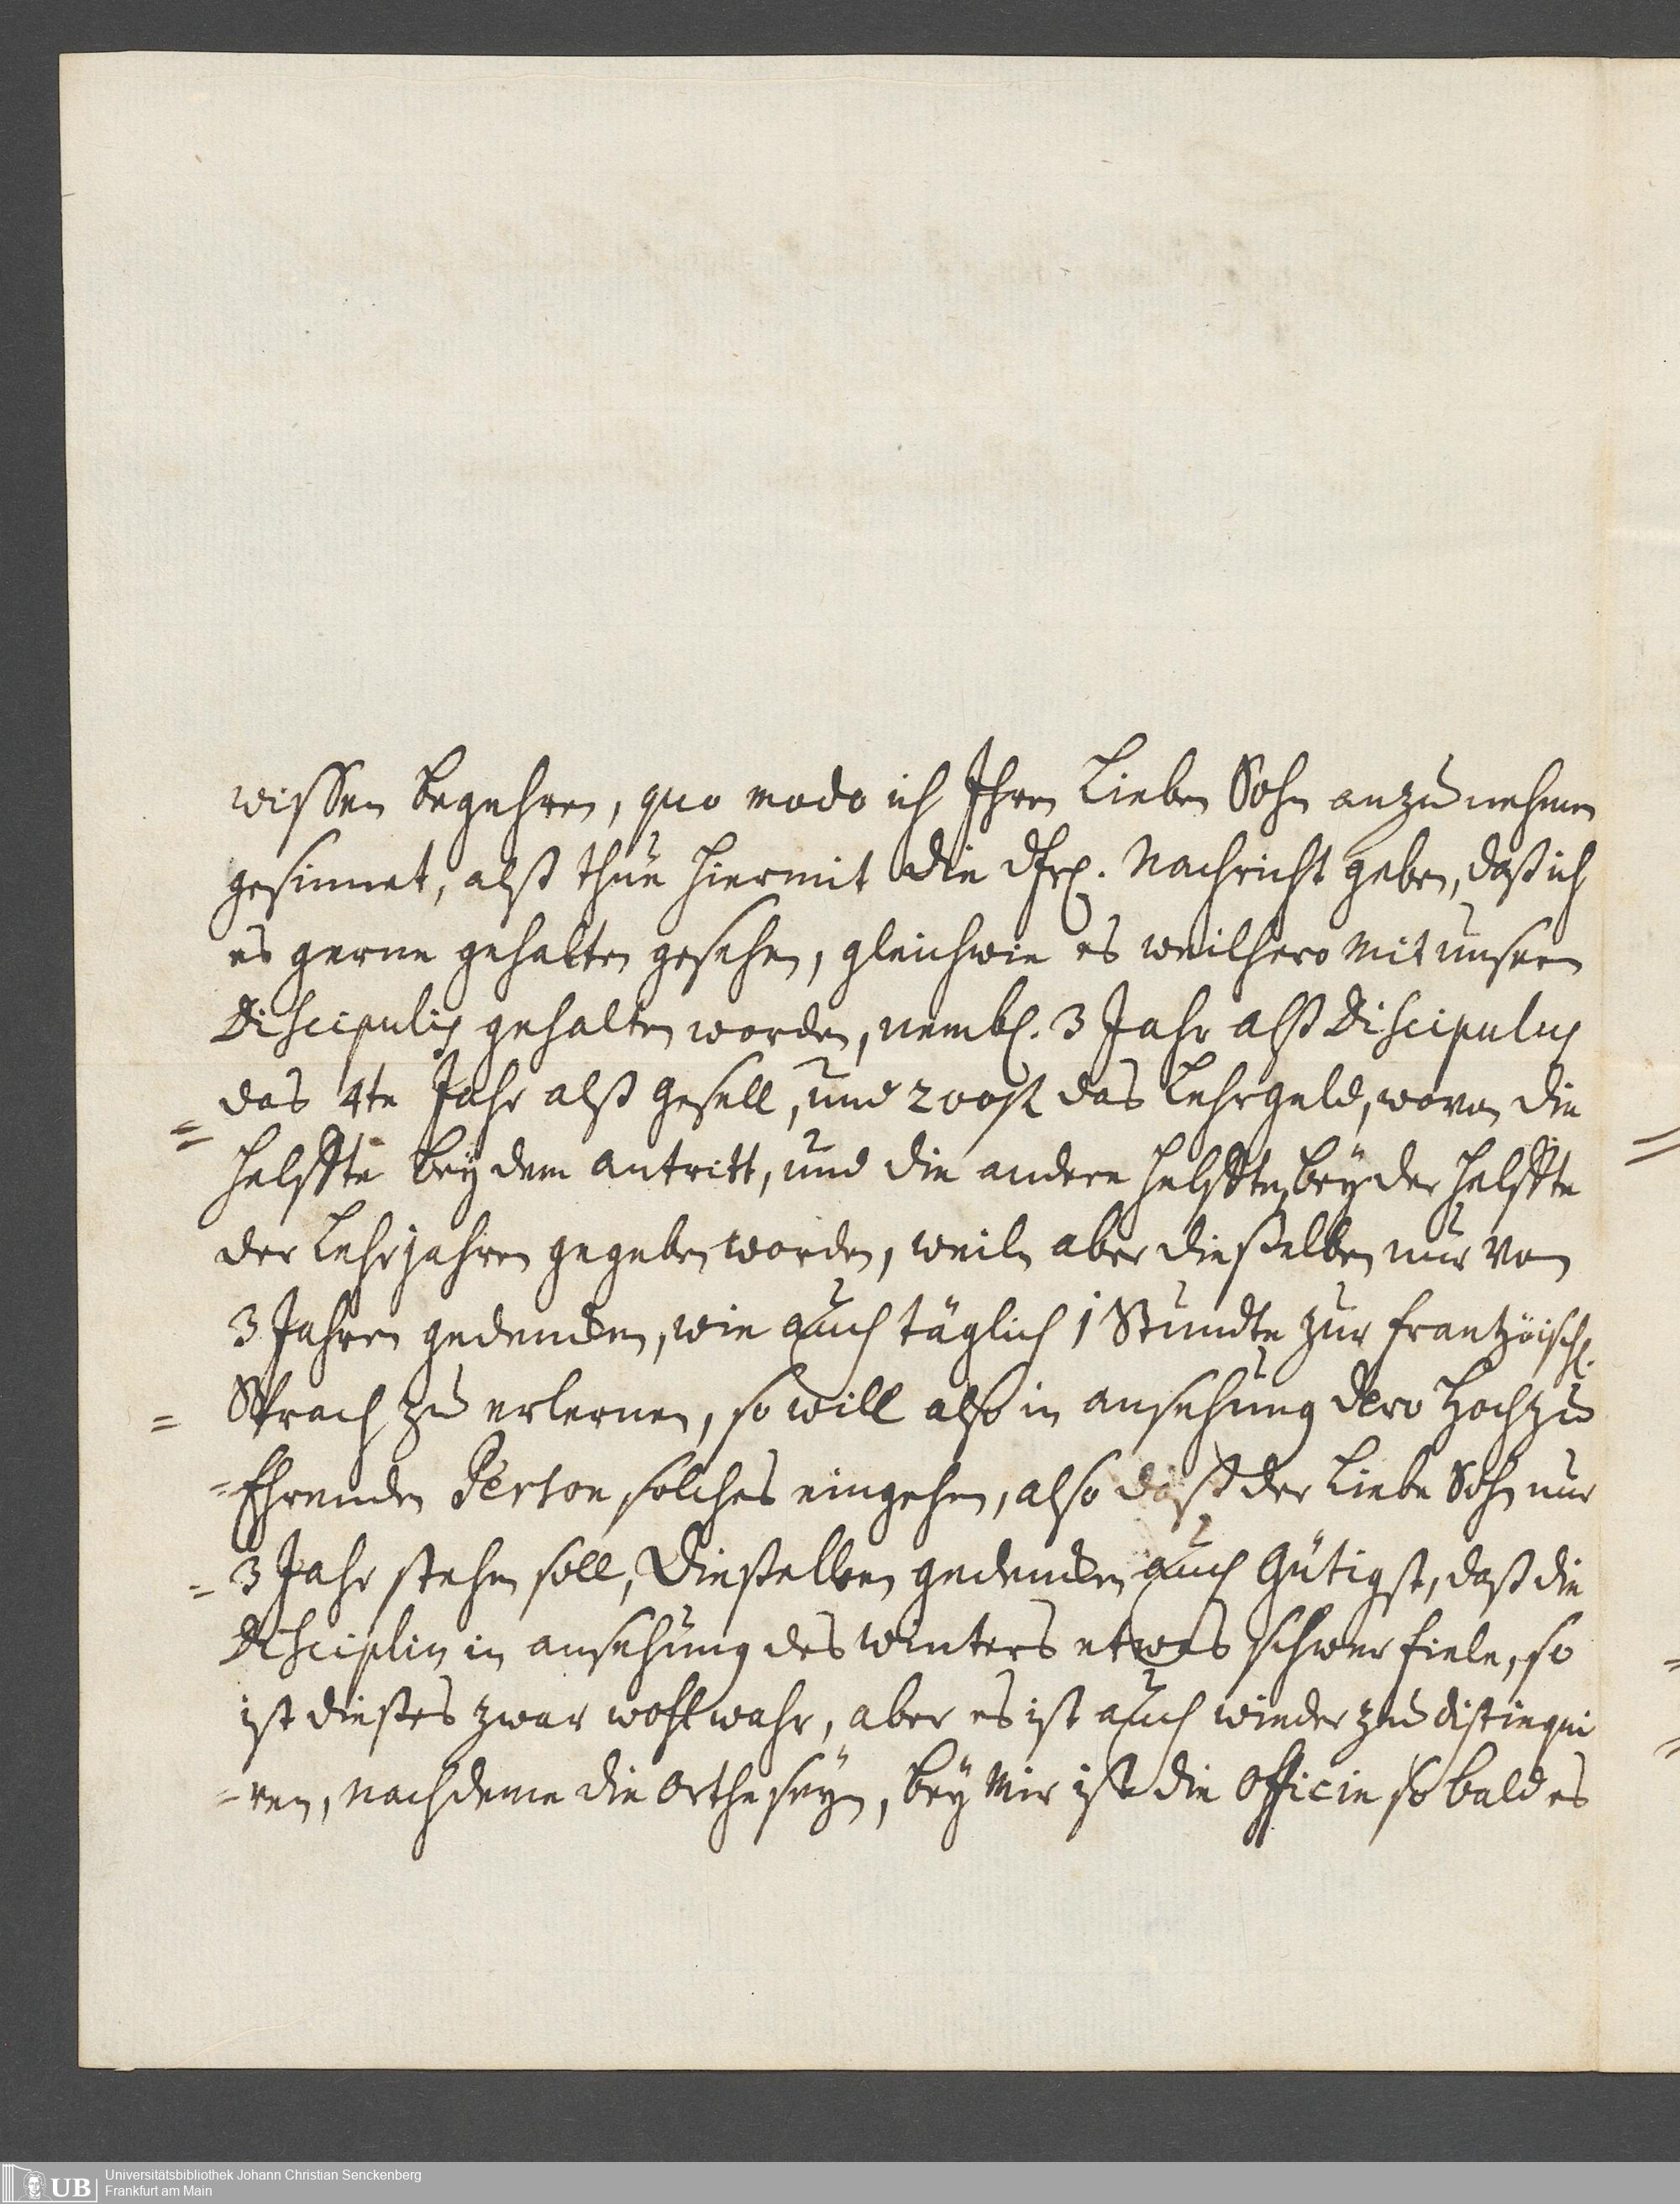 wissen begehren, quo modo ich Ihren Lieben Sohn anzunehmen
gesinnet, alß thue hiermit die Nachricht geben, daß ich
es gerne gehalten gesehen, gleichwie es weilhero mit unsern
Discipulis gehalten worden, nembl. 3 Jahr alß Discipulus
das 4te Jahr alß Gesell, und 200 fl das Lehrgeld, wovon die
helffte bey dem antritt, und die andere helffte, bey der helffte
der Lehrjahren gegeben worden, weiln aber dieselben nur von
3 Jahren gedencken, wie auch täglich 1 Stundte zur frantzöisch.
Sprach zu erlernen, so will also in ansehung dero Hochzu
=Ehrenden Person solches eingehen, also daß der Liebe Sohn nur
3 Jahr stehen soll, Dieselben gedencken auch Gütigst, daß die
Disciplin in ansehung des winters etwas schwer fiele, so
ist dießes zwar wohl wahr, aber es ist auch wieder zu distinqui
=ren, nachdeme die Orthe seyn, bey mir ist die Officin so bald es
UB
Universitätsbibliothek Johann Christian Senckenberg
Frankfurt am Main